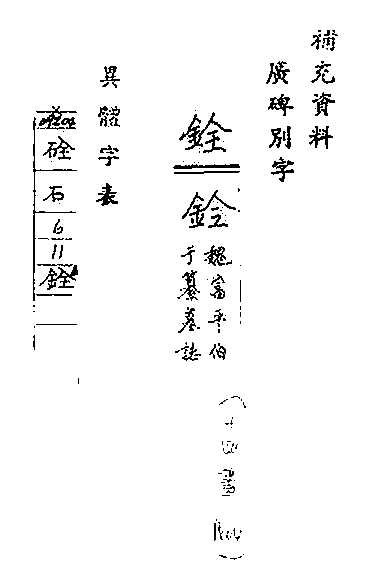 補充資料
廣碑別字
銓
銓
魏富平伯
于纂墓誌
異體字表
硂
石
6
11
銓